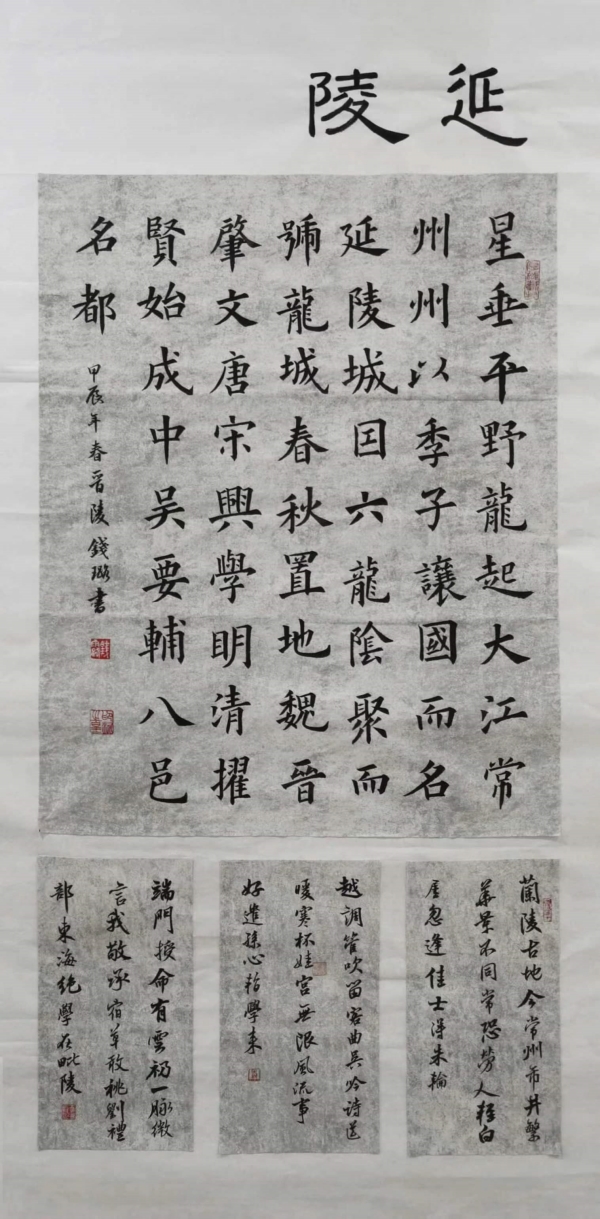 延陵
星垂平野龍起大江常
州州以季子讓國而名
延陵城囙六龍陰聚而
號龍城春秋置地魏晉
肇文唐宋興學明清擢
賢始成中吳要輔八邑
名都
甲辰年春晉陵錢璐書
蘭陵古地今常州市井繁
華景不同常恐勞人輕白
屋忽逢佳士得朱輪
越調管吹留客曲吳吟詩送
暖寒杯娃宮無限風流事
好遣孫心暫學來
端門授命有雲礽一脈微
言我敬承宿草敢祧劉禮
部東海絕學在毗陵